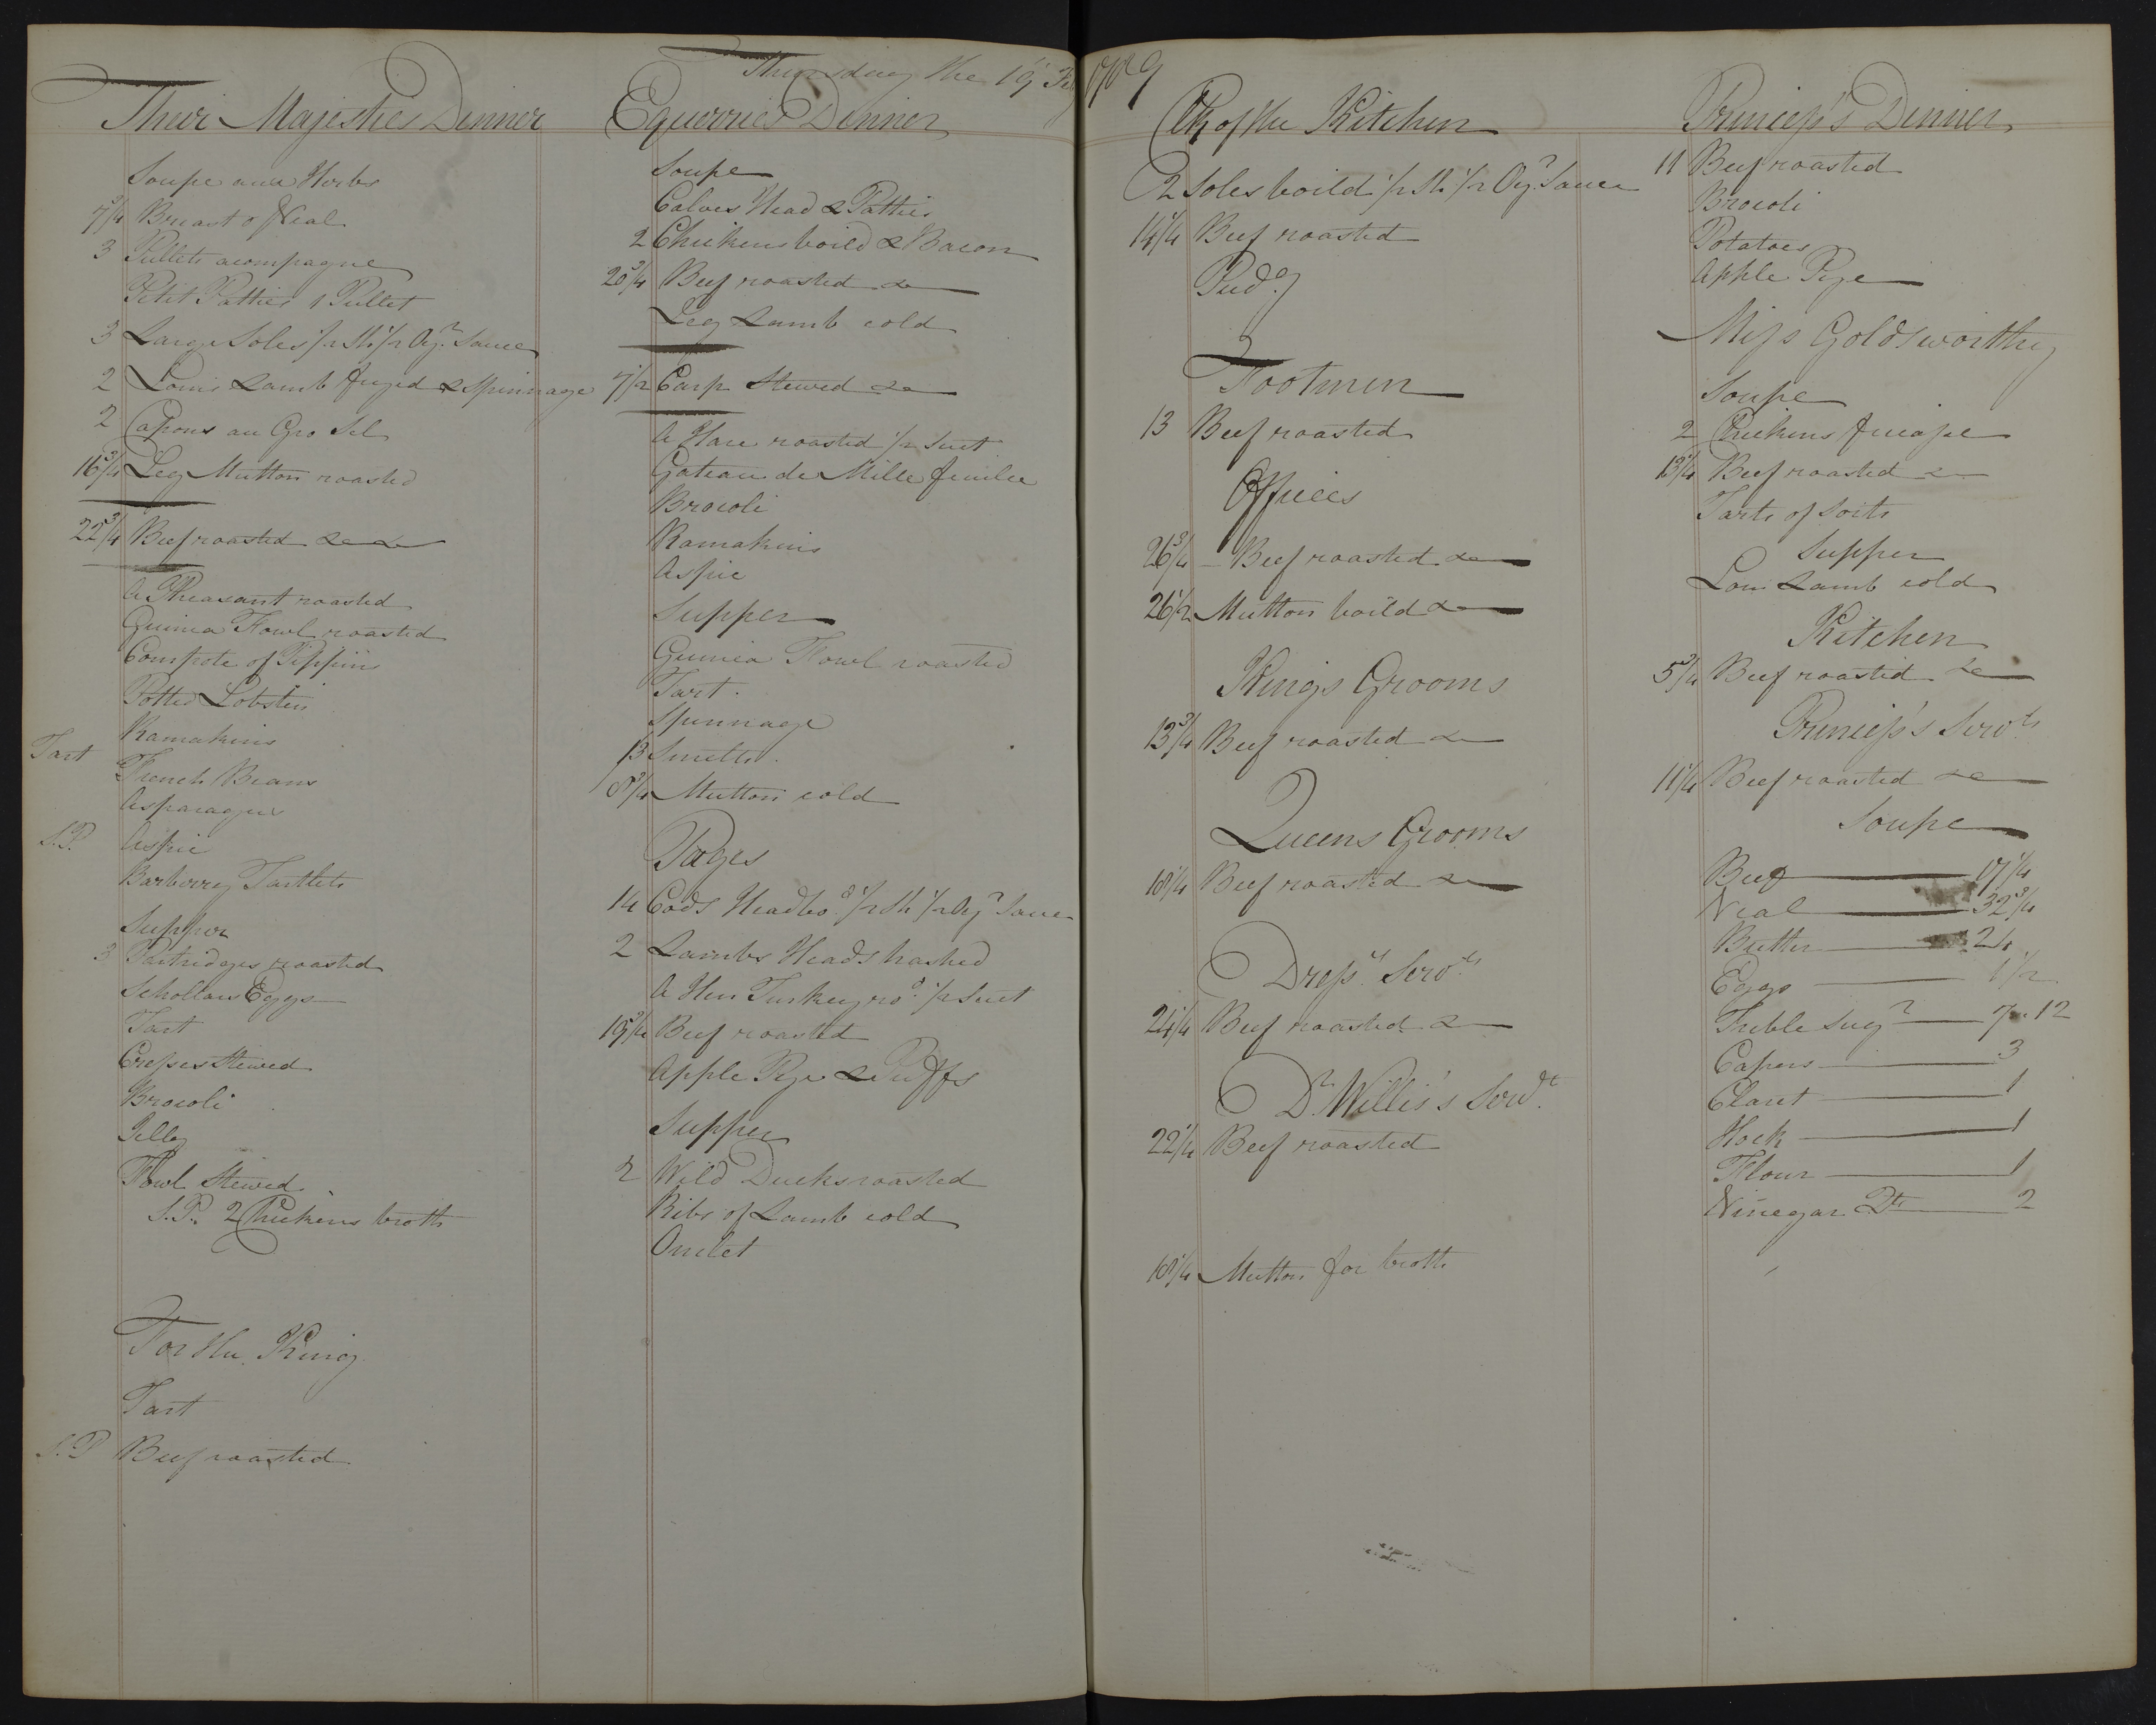 Thursday the 19 Feb 1789
Their Majesties Dinner
Soupe aux Herbs
7 3/4 Breast of Veal
3 Pullets acompagne
Petit Patties 1 Pullet
3 Large Soles 1/2 Sh. 1/2 Oyr. Sauce
2 Loins Lamb fryed & Spinnage
2 Capons au Gro Sel
16 3/4 Leg Mutton roasted
22 3/4 Beef roasted &c &c
A Pheasant roasted
Guinea Fowl roasted
Compote of Pippins
Potted Lobster
Ramakins
Tart French Beans
Asparagus
S.P. Aspic
Barberrey Tartlets
Supper
3 Partridges roasted
Schollars Eggs
Tart
Crepes Stewed
Brocoli
Jelly
Fowl Stewed
S.P. 2 Chickens broth
For the King
Tart
S.P Beef roasted
Equerries Dinner
Soupe
Calves Head & Patties
2 Chickens boild & Bacon
20 3/4 Beef roasted &c
Leg Lamb cold
7 1/2 Carp Stewed &c
A Hare roasted 1/2 Suet
Gateau de Mille feuilee
Brocoli
Ramakins
Aspic
Supper
Guinea Fowl roasted
Tart.
Spinnage
13 Smelts.
8 3/4 Mutton cold
Pages
14 Cods Head bod. 1/2 Sh 1/2 Oyr Sauce
2 Lambs Heads hashed
A Hen Turkey rod. 1/2 Suet
19 3/4 Beef roasted
Apple Pye & Puffs
Supper
2 Wild Ducks roasted
Ribs of Lamb cold
Omlet
Clk of the Kitchen
2 Soles boild 1/2 Sh. 1/2 Oyr. Sauce
14 1/4 Beef roasted
Pudg
Footmen
13 Beef roasted
Offices
26 3/4 Beef roasted &c
26 1/2 Mutton boild &c
Kings Grooms
13 3/4 Beef roasted &c
Queens Grooms
18 1/4 Beef roasted &c
Dresrs. Servts
24 1/4 Beef roasted &c
Dr. Willis's Servt.
22 1/4 Beef roasted
18 1/4 Mutton for broth
Princess's Dinner
11 Beef roasted
Brocoli
Potatoes
Apple Pye
Miss Goldsworthy
Soupe
2 Chickens fricasee
13 1/4 Beef roasted &c
Tarts of Sorts
Supper
Loin Lamb cold
Kitchen
5 3/4 Beef roasted &c
Princess's Servts
11 1/4 Beef roasted &c
Soupe
Beef 17 1/4
Veal 32 3/4
Butter 24
Eggs 1 1/2
Treble Sugr 7..12
Capers 3
Claret 1
Hock 1
Flour 1
Vinegar Qts 2